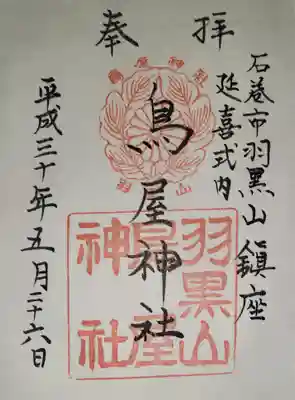 奉拝
石巻市羽黒山鎮座
延喜式内
鳥屋神社
平成三十年五月二十六日
羽黒山
鳥屋
神社